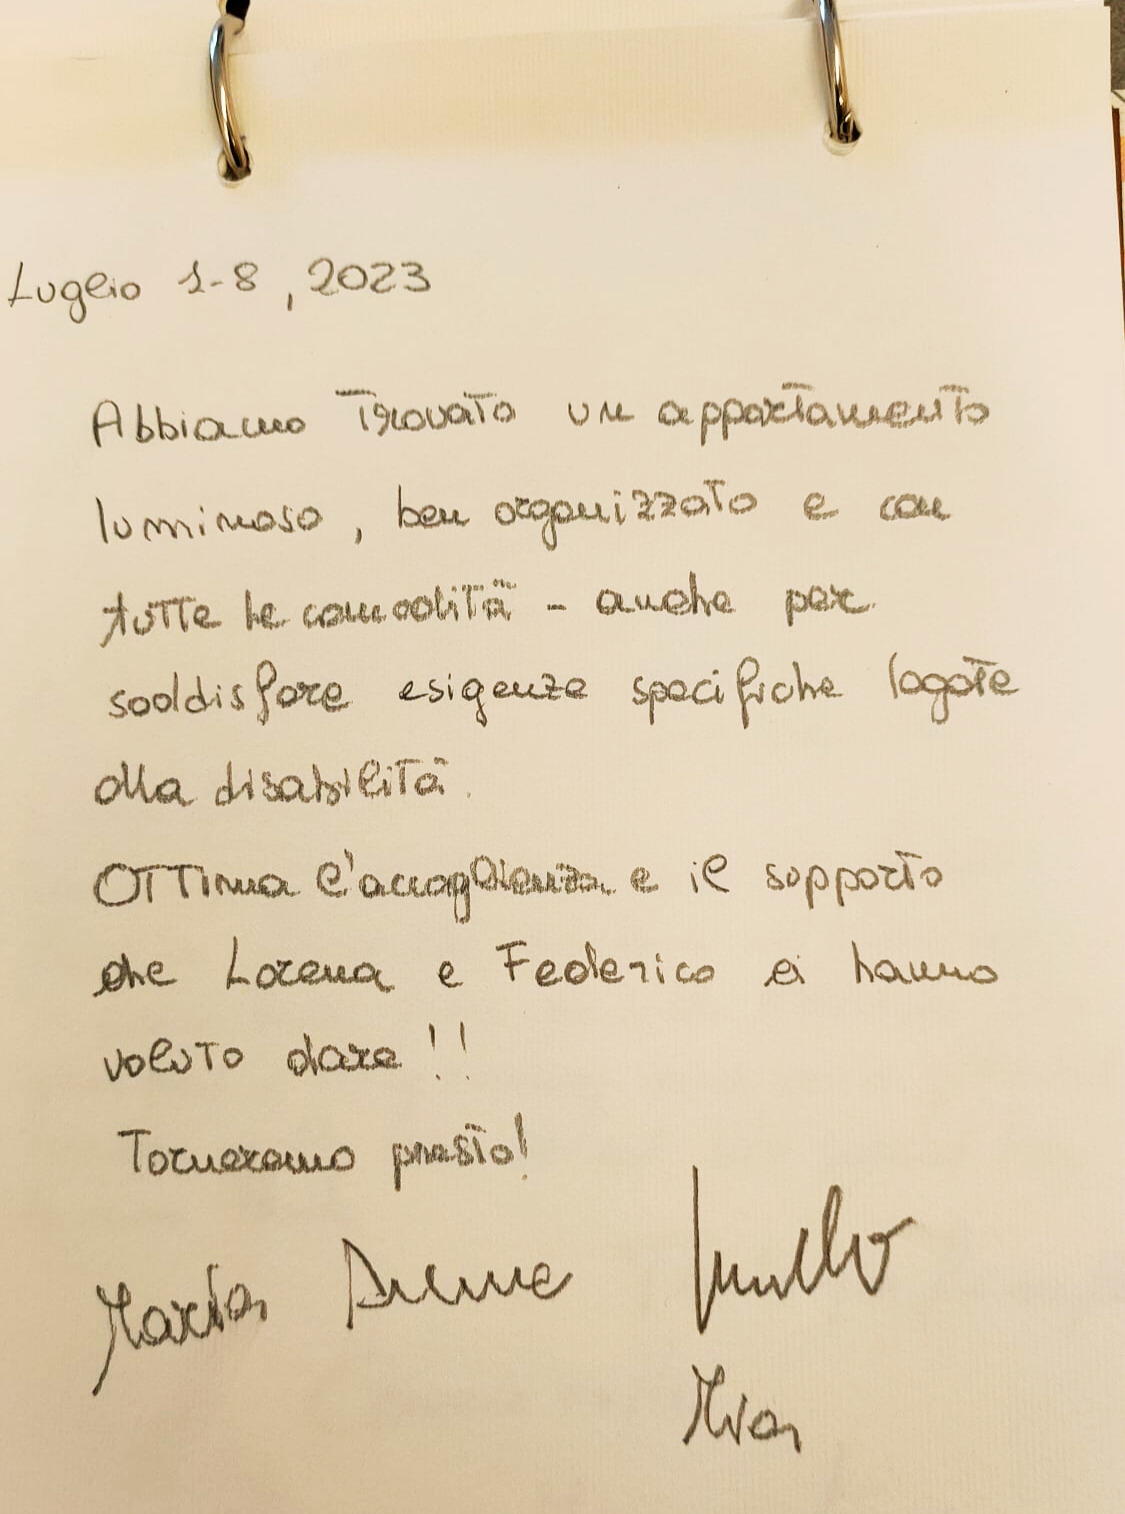 Luglio 1-8, 2023
Abbiamo Trovato un appartamento
luminoso, ben organizzato e con
tutte le comodità - anche per
soddisfare esigenze specifiche legate
alla disabilità.
OTTima l'accoglienza e il supporto
che Lorena e Federico ci hanno
voluto dare!!
Torneremo presto!
Maria Anna
Mia